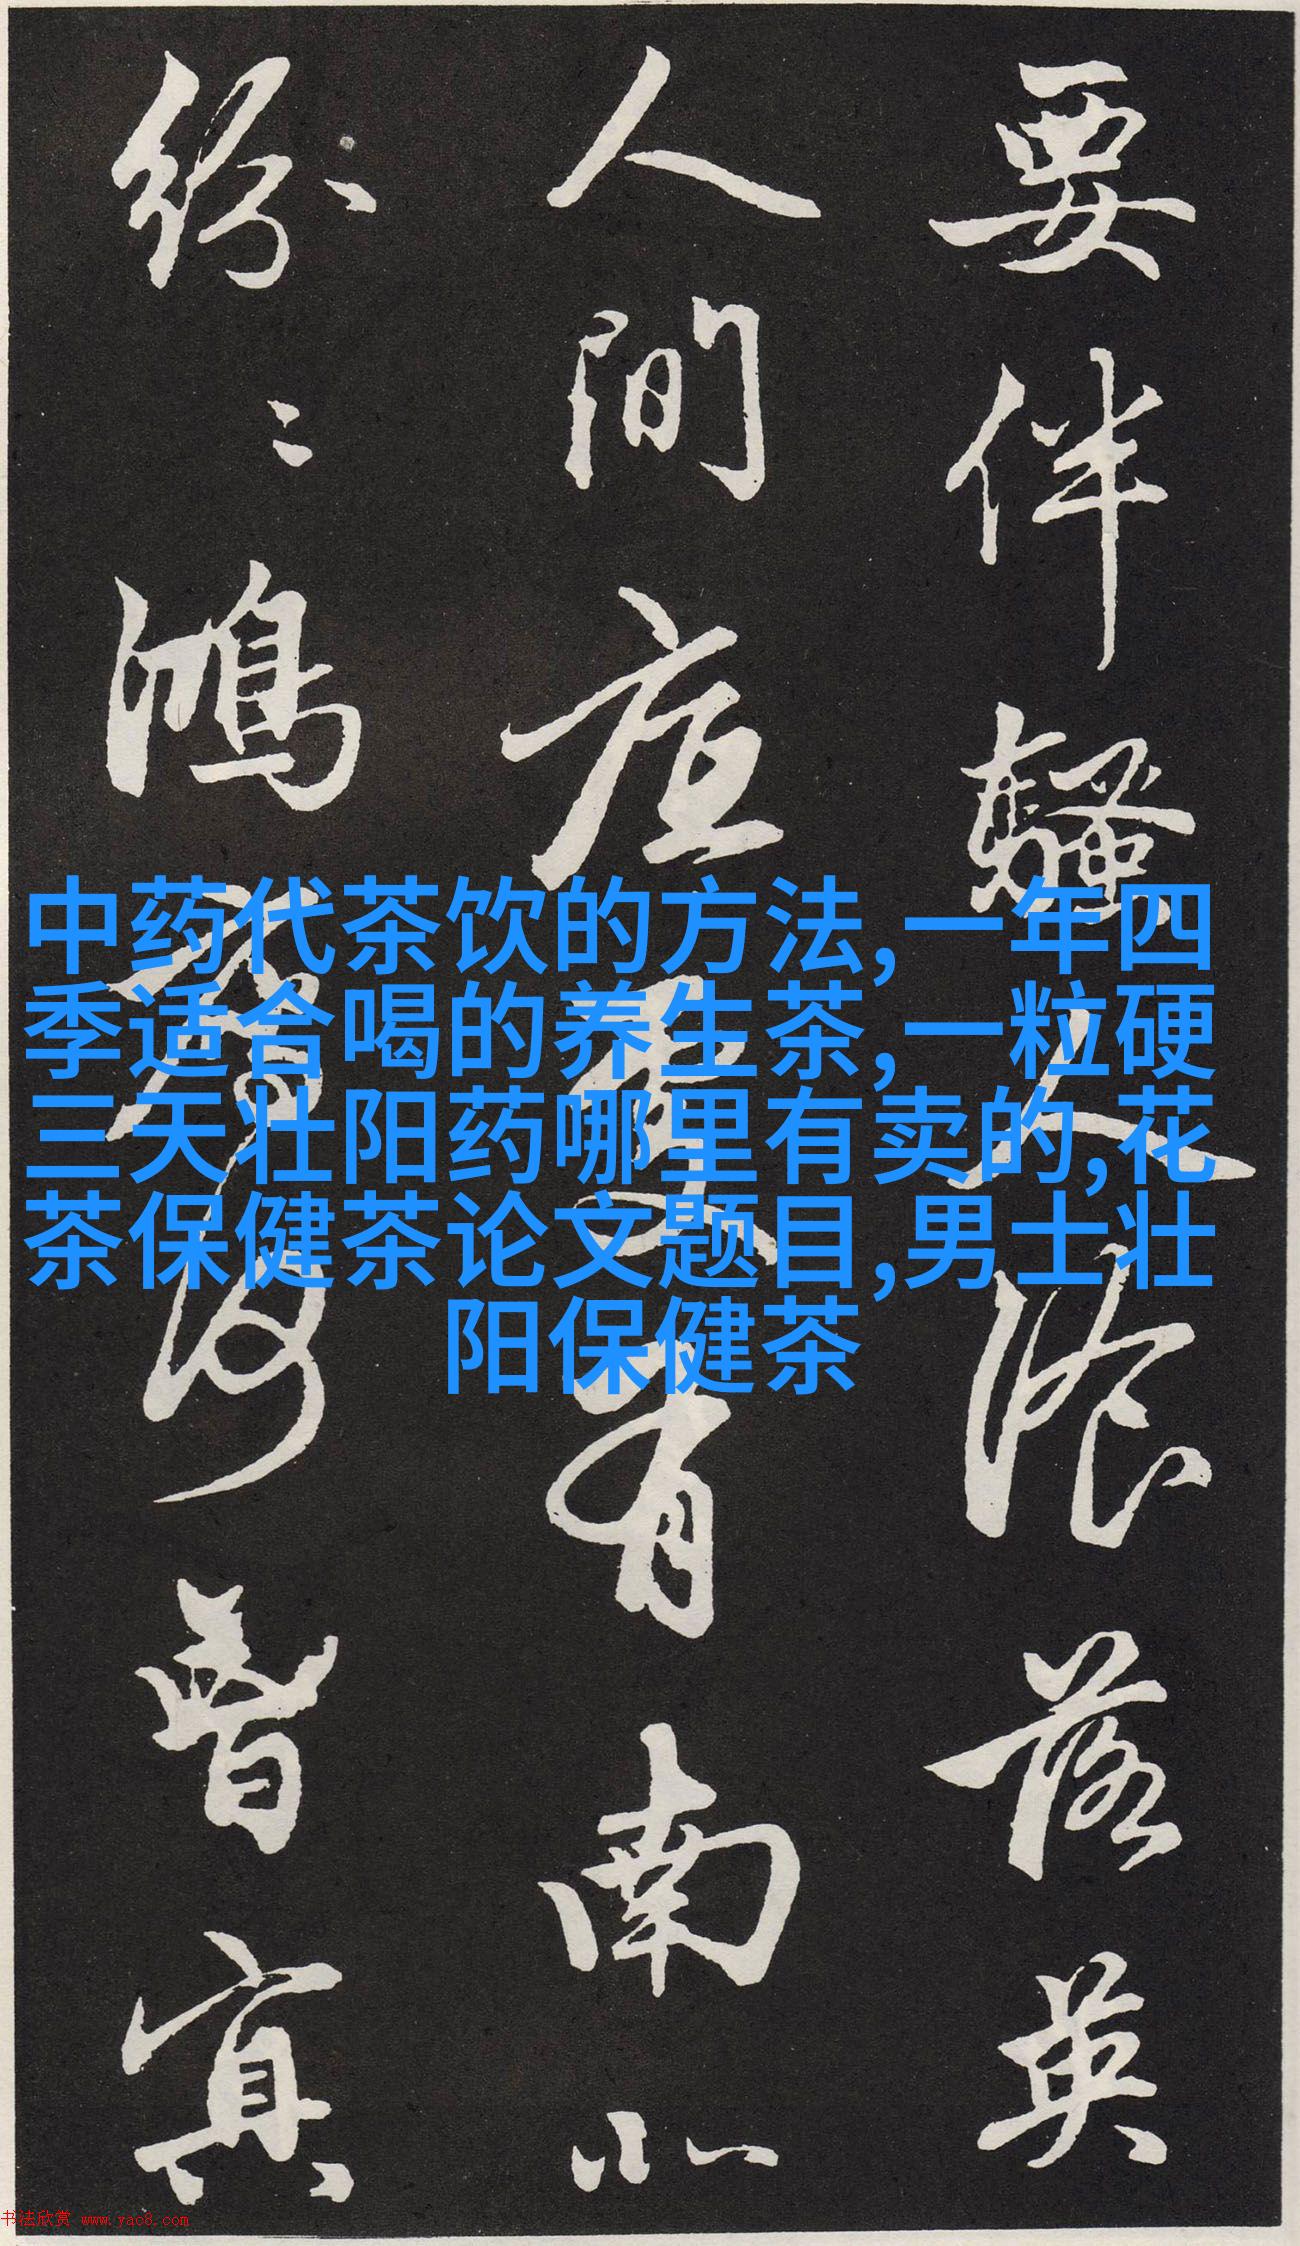 要伴騷人湌落英
人間底處有南北
紛〻鴻鴈何曾冥
中药代茶饮的方法,一年四
季适合喝的养生茶,一粒硬
三天壮阳药哪里有卖的,花
茶保健茶论文题目,男士壮
阳保健茶
书法欣赏 www.yac8.com